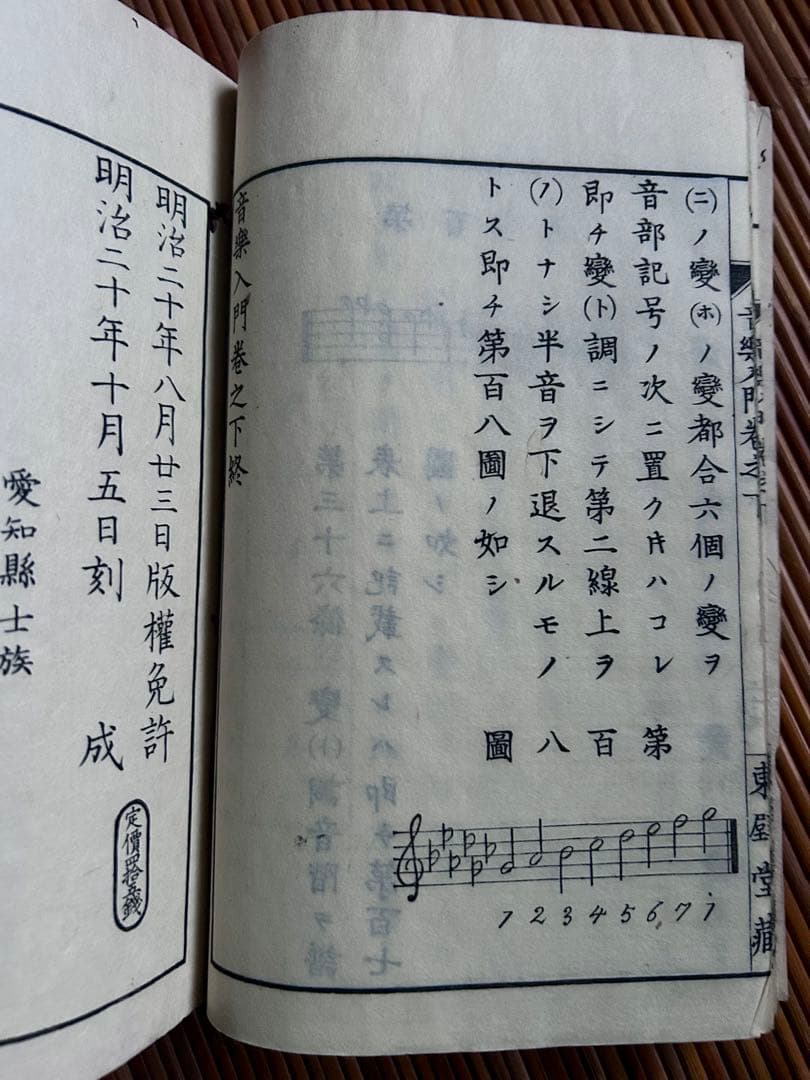 (ニ)ノ變(ホ)ノ變都合六個ノ變ヲ
音部記号ノ次ニ置クキハコレ
即チ變(ト)調ニシテ第二線上ヲ
(ノ)トナシ半音ヲ下退スルモノ
トス即チ第百八圖ノ如シ
第百八圖
1 2 3 4 5 6 7 i
音樂入門卷之下終
音樂入門卷之下
東壁堂藏
明治二十年八月廿三日版權免許
明治二十年十月五日刻成
定價四拾五錢
愛知縣士族